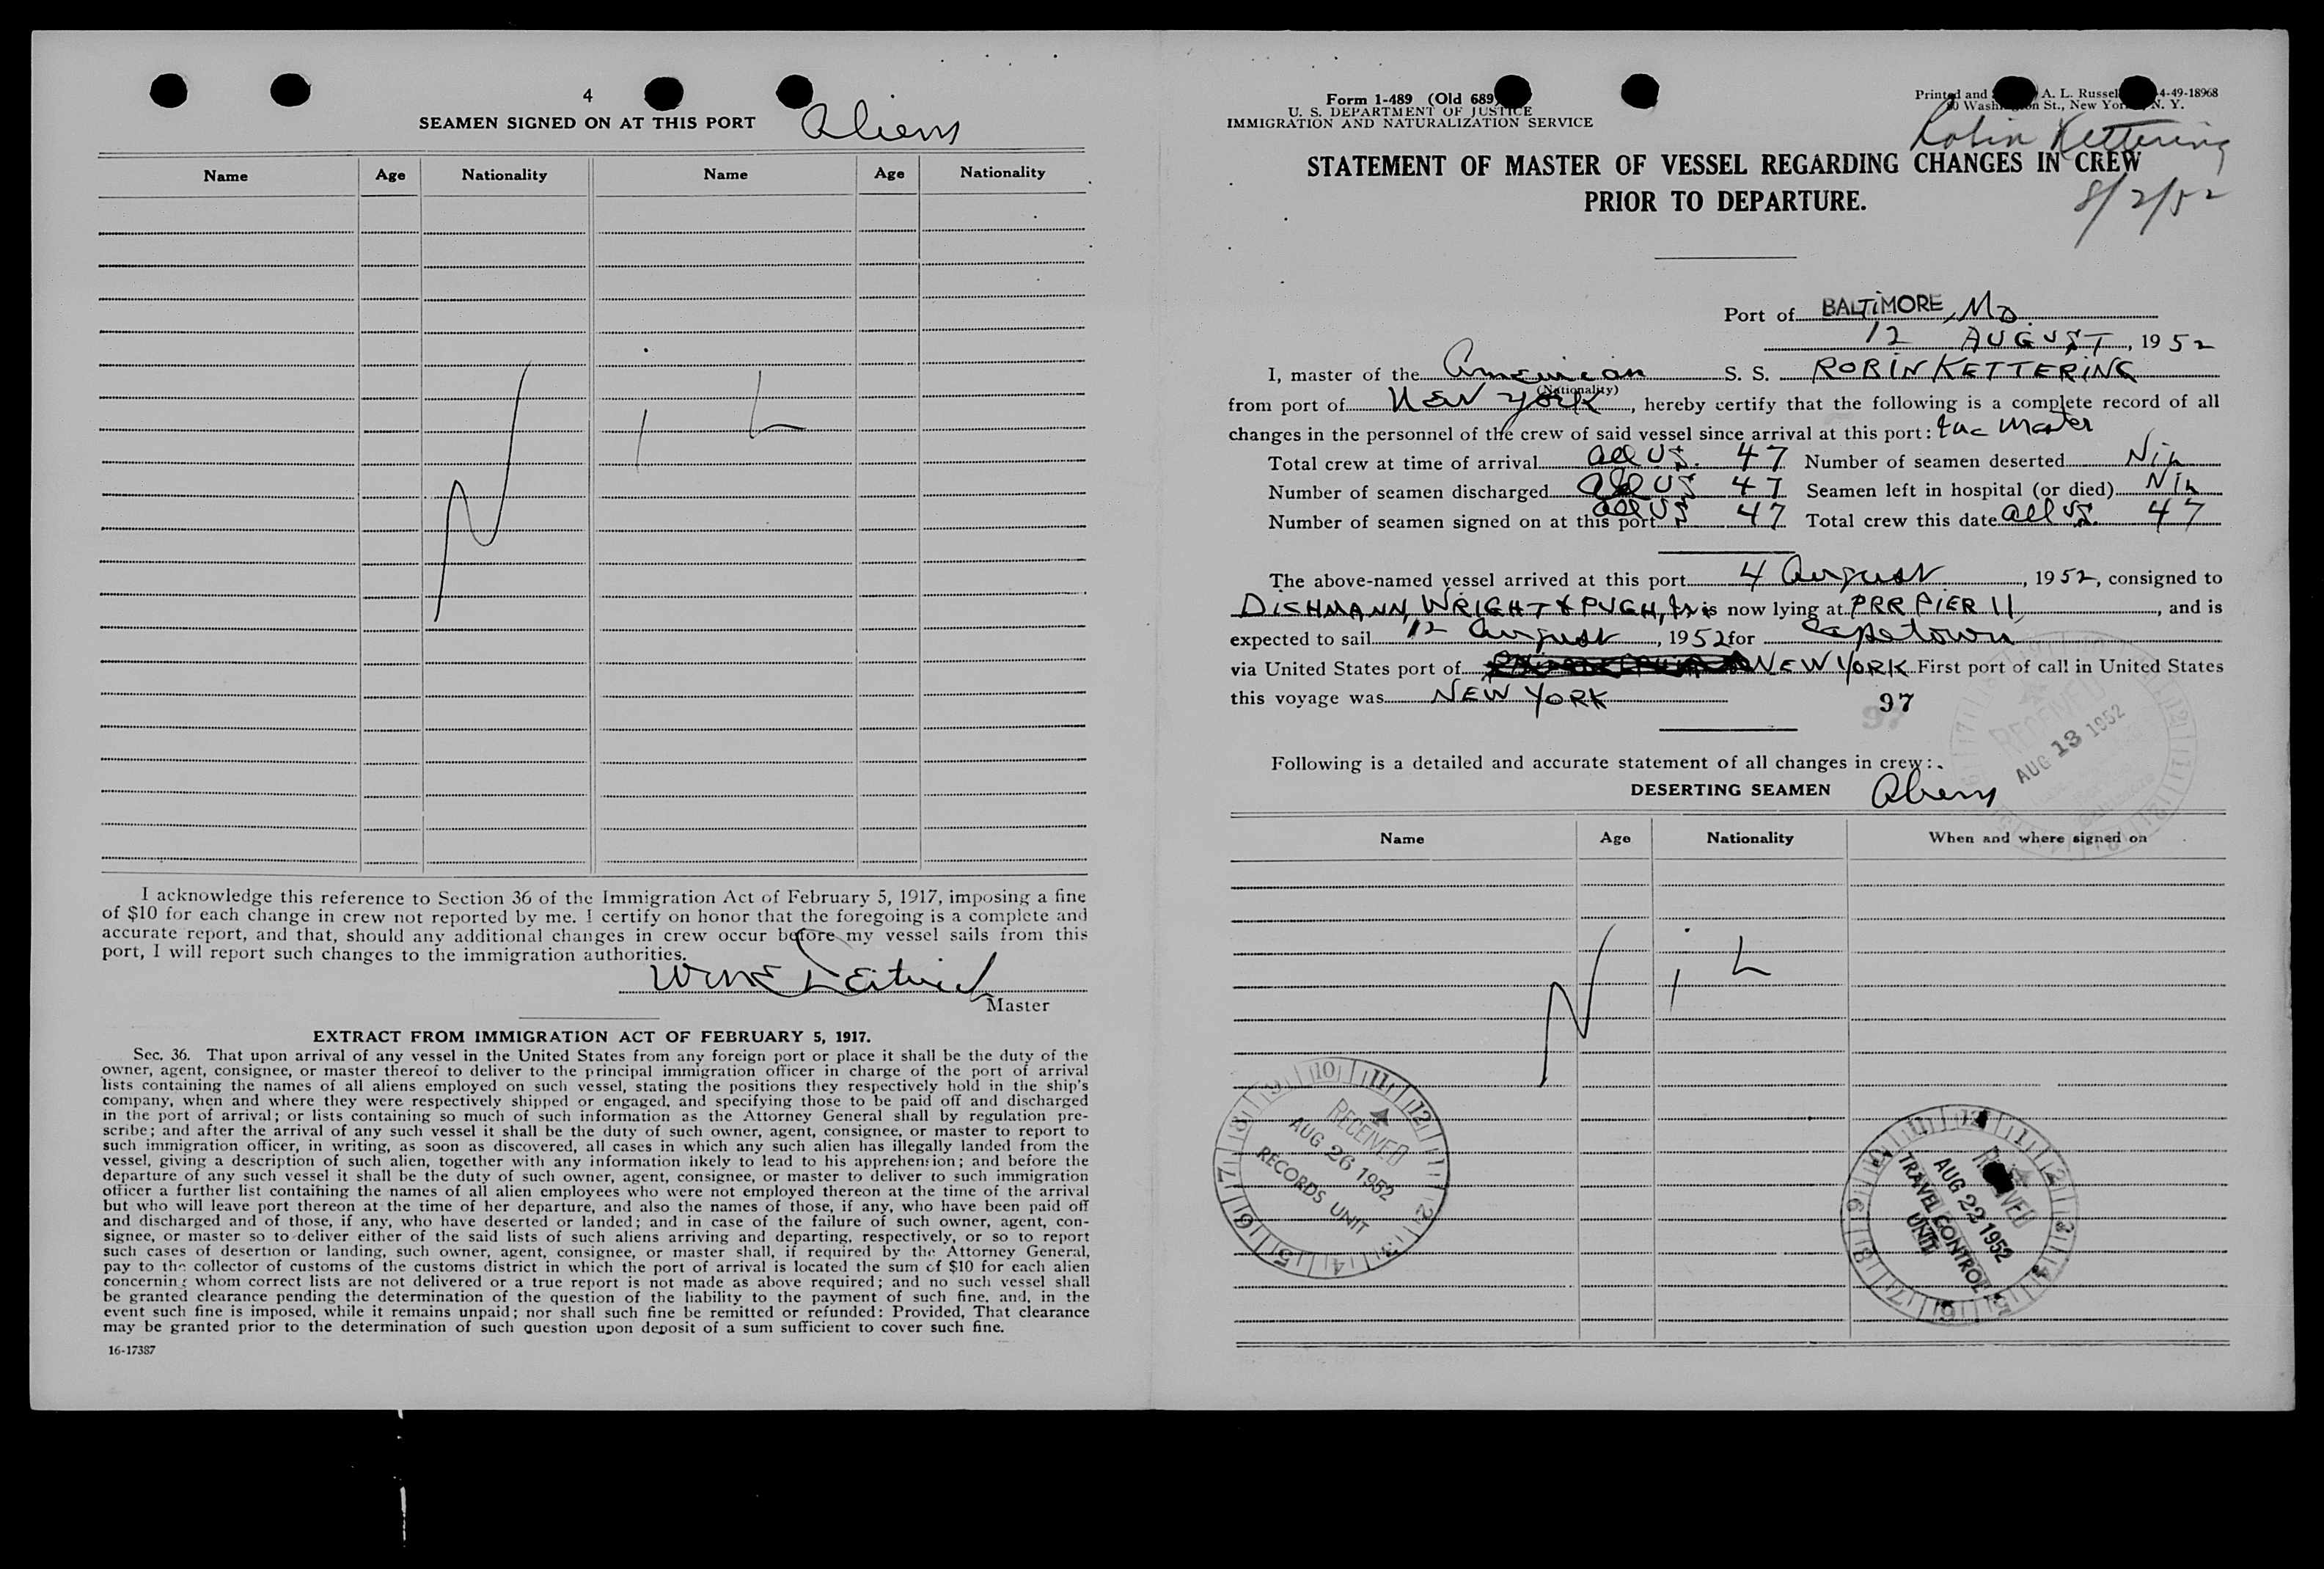 4
SEAMEN SIGNED ON AT THIS PORT Aliens
Name Age Nationality Name Age Nationality
N i L
I acknowledge this reference to Section 36 of the Immigration Act of February 5, 1917, imposing a fine
of $10 for each change in crew not reported by me. I certify on honor that the foregoing is a complete and
accurate report, and that, should any additional changes in crew occur before my vessel sails from this
port, I will report such changes to the immigration authorities.
Master
EXTRACT FROM IMMIGRATION ACT OF FEBRUARY 5, 1917.
Sec. 36. That upon arrival of any vessel in the United States from any foreign port or place it shall be the duty of the
owner, agent, consignee, or master thereof to deliver to the principal immigration officer in charge of the port of arrival
lists containing the names of all aliens employed on such vessel, stating the positions they respectively hold in the ship's
company, when and where they were respectively shipped or engaged, and specifying those to be paid off and discharged
in the port of arrival; or lists containing so much of such information as the Attorney General shall by regulation pre-
scribe; and after the arrival of any such vessel it shall be the duty of such owner, agent, consignee, or master to report to
such immigration officer, in writing, as soon as discovered, all cases in which any such alien has illegally landed from the
vessel, giving a description of such alien, together with any information likely to lead to his apprehension; and before the
departure of any such vessel it shall be the duty of such owner, agent, consignee, or master to deliver to such immigration
officer a further list containing the names of all alien employees who were not employed thereon at the time of the arrival
but who will leave port thereon at the time of her departure, and also the names of those, if any, who have been paid off
and discharged and of those, if any, who have deserted or landed; and in case of the failure of such owner, agent, con-
signee, or master so to deliver either of the said lists of such aliens arriving and departing, respectively, or so to report
such cases of desertion or landing, such owner, agent, consignee, or master shall, if required by the Attorney General,
pay to the collector of customs of the customs district in which the port of arrival is located the sum of $10 for each alien
concerning whom correct lists are not delivered or a true report is not made as above required; and no such vessel shall
be granted clearance pending the determination of the question of the liability to the payment of such fine, and, in the
event such fine is imposed, while it remains unpaid; nor shall such fine be remitted or refunded: Provided, That clearance
may be granted prior to the determination of such question upon deposit of a sum sufficient to cover such fine.
16-17387
Form I-489 (Old 689)
U. S. DEPARTMENT OF JUSTICE
IMMIGRATION AND NATURALIZATION SERVICE
Printed and A. L. Russel 4-49-18968
St., New York, N. Y.
Robin Kettering
STATEMENT OF MASTER OF VESSEL REGARDING CHANGES IN CREW
PRIOR TO DEPARTURE.
8/2/52
Port of BALTIMORE, MD.
12 AUGUST, 1952
I, master of the American S. S. ROBIN KETTERING
(Nationality)
from port of New York, hereby certify that the following is a complete record of all
changes in the personnel of the crew of said vessel since arrival at this port: Inc Master
Total crew at time of arrival All US. 47 Number of seamen deserted Nil
Number of seamen discharged All US 47 Seamen left in hospital (or died) Nil
Number of seamen signed on at this port All US 47 Total crew this date All US. 47
The above-named vessel arrived at this port 4 August, 1952, consigned to
DICHMANN, WRIGHT & PUGH, Inc is now lying at PRR PIER 11, and is
expected to sail 12 August, 1952 for Capetown
via United States port of NEW YORK First port of call in United States
this voyage was NEW YORK
97
RECEIVED
AUG 13 1952
Following is a detailed and accurate statement of all changes in crew:
DESERTING SEAMEN Aliens
Name Age Nationality When and where signed on
N i L
RECEIVED
AUG 26 1952
RECORDS UNIT
RECEIVED
AUG 22 1952
TRAVEL CONTROL
UNIT